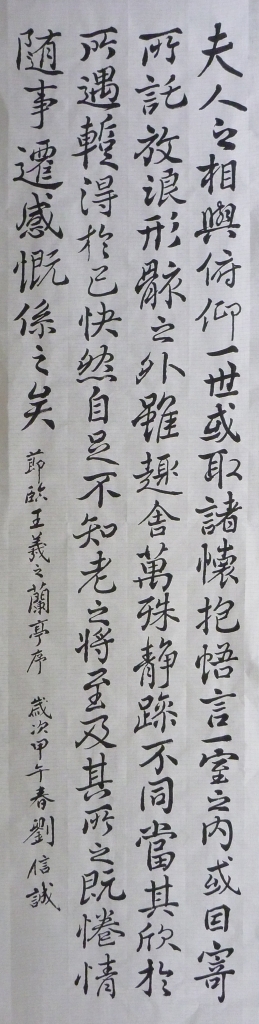 夫人之相與俯仰一世或取諸懷抱悟言一室之內或因寄
所託放浪形骸之外雖趣舍萬殊靜躁不同當其欣於
所遇蹔得於己快然自足不知老之將至及其所之既惓情
随事遷感慨係之矣
節臨王羲之蘭亭序 歲次甲午春劉信誠